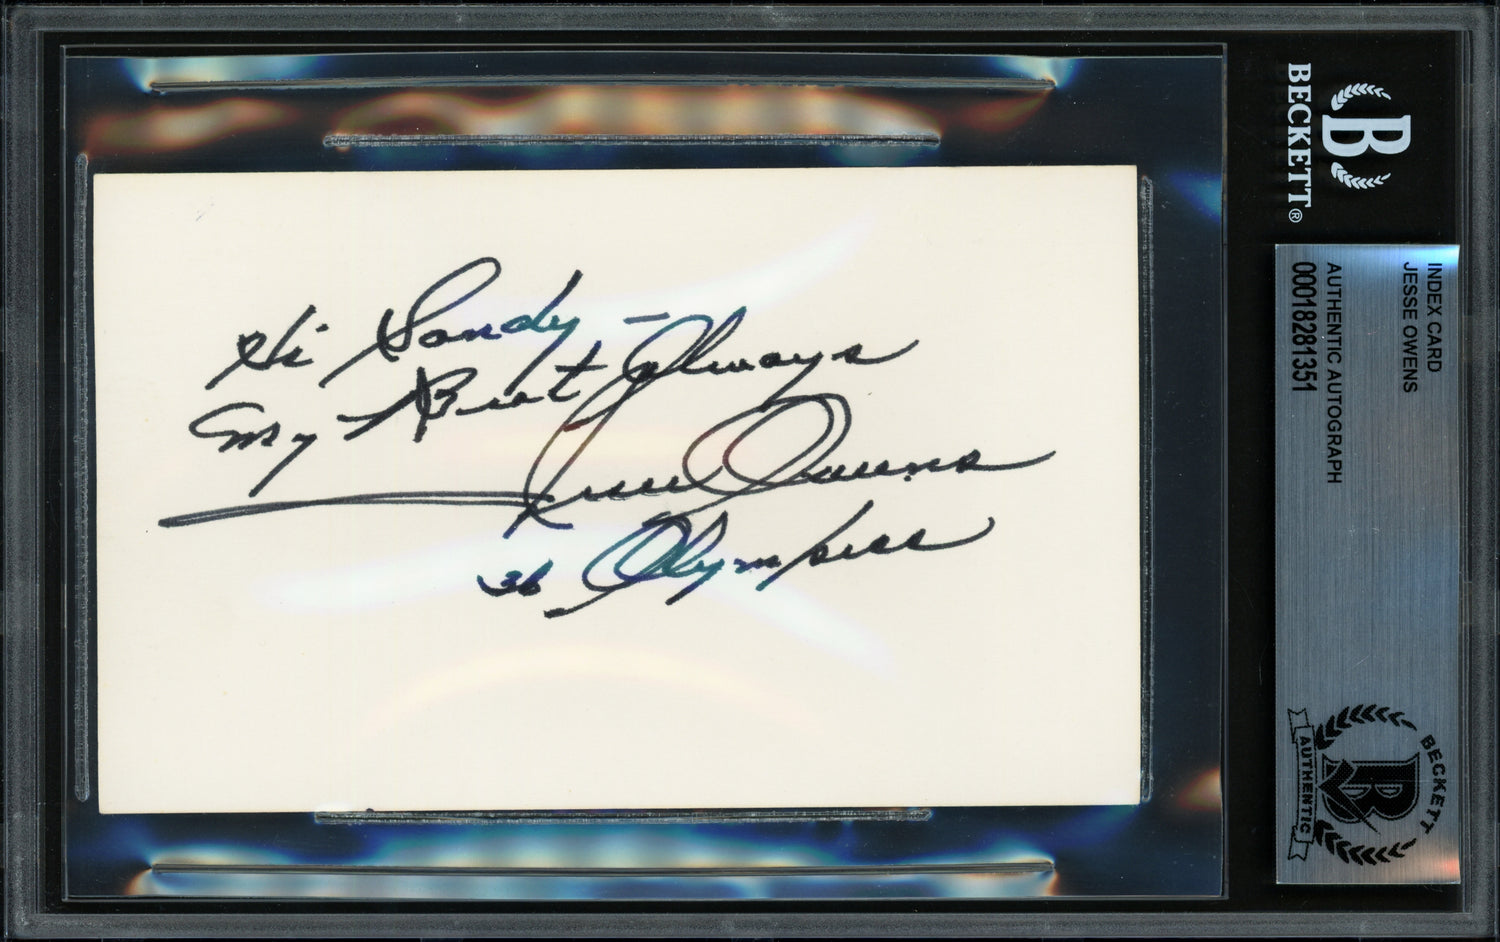 Hi Sandy –
My Best Always
Jesse Owens
36 Olympics
BECKETT®
B
INDEX CARD
JESSE OWENS
AUTHENTIC AUTOGRAPH
00018281351
BECKETT
B
AUTHENTIC